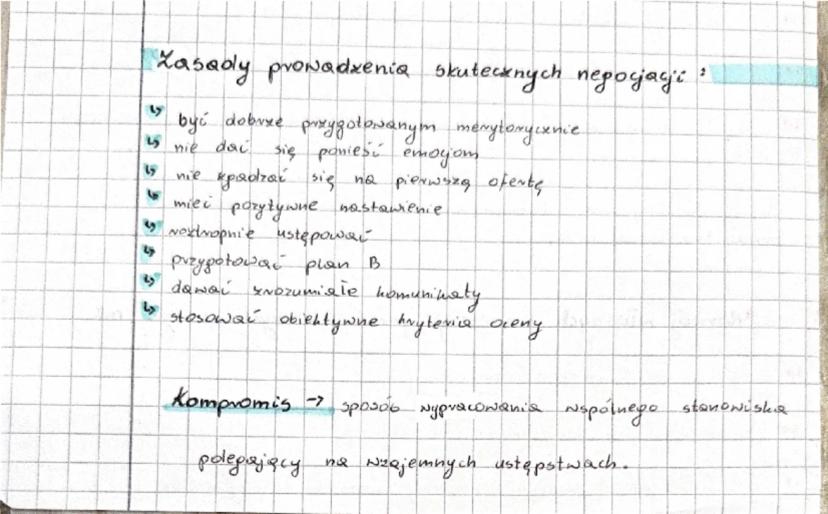 Zasady prowadzenia skutecznych negocjacji:
↳ być dobrze przygotowanym merytorycznie
↳ nie dać się ponieść emocjom
↳ nie zgadzać się na pierwszą ofertę
↳ mieć pozytywne nastawienie
↳ roztropnie ustępować
↳ przygotować plan B
↳ dawać zrozumiałe komunikaty
↳ stosować obiektywne kryteria oceny
Kompromis → sposób wypracowania wspólnego stanowiska
polegający na wzajemnych ustępstwach.